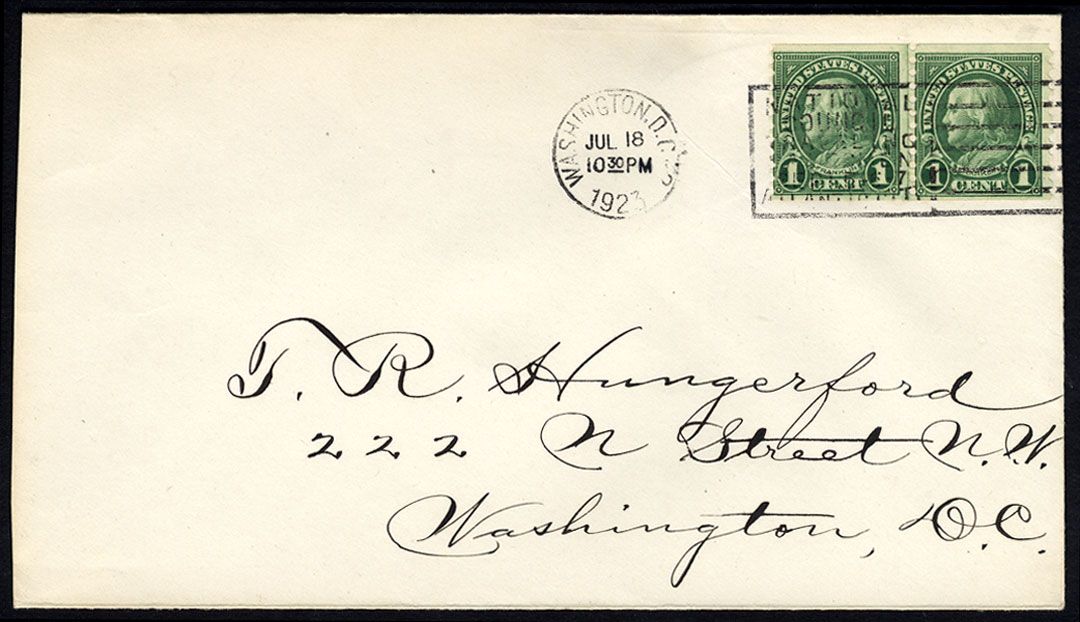 WASHINGTON, D.C.
JUL 18
10 30 PM
1923
UNITED STATES POSTAGE
FRANKLIN
1 CENT 1
UNITED STATES POSTAGE
1 CENT 1
T. R. Hungerford
222 N Street N.W.
Washington, D.C.